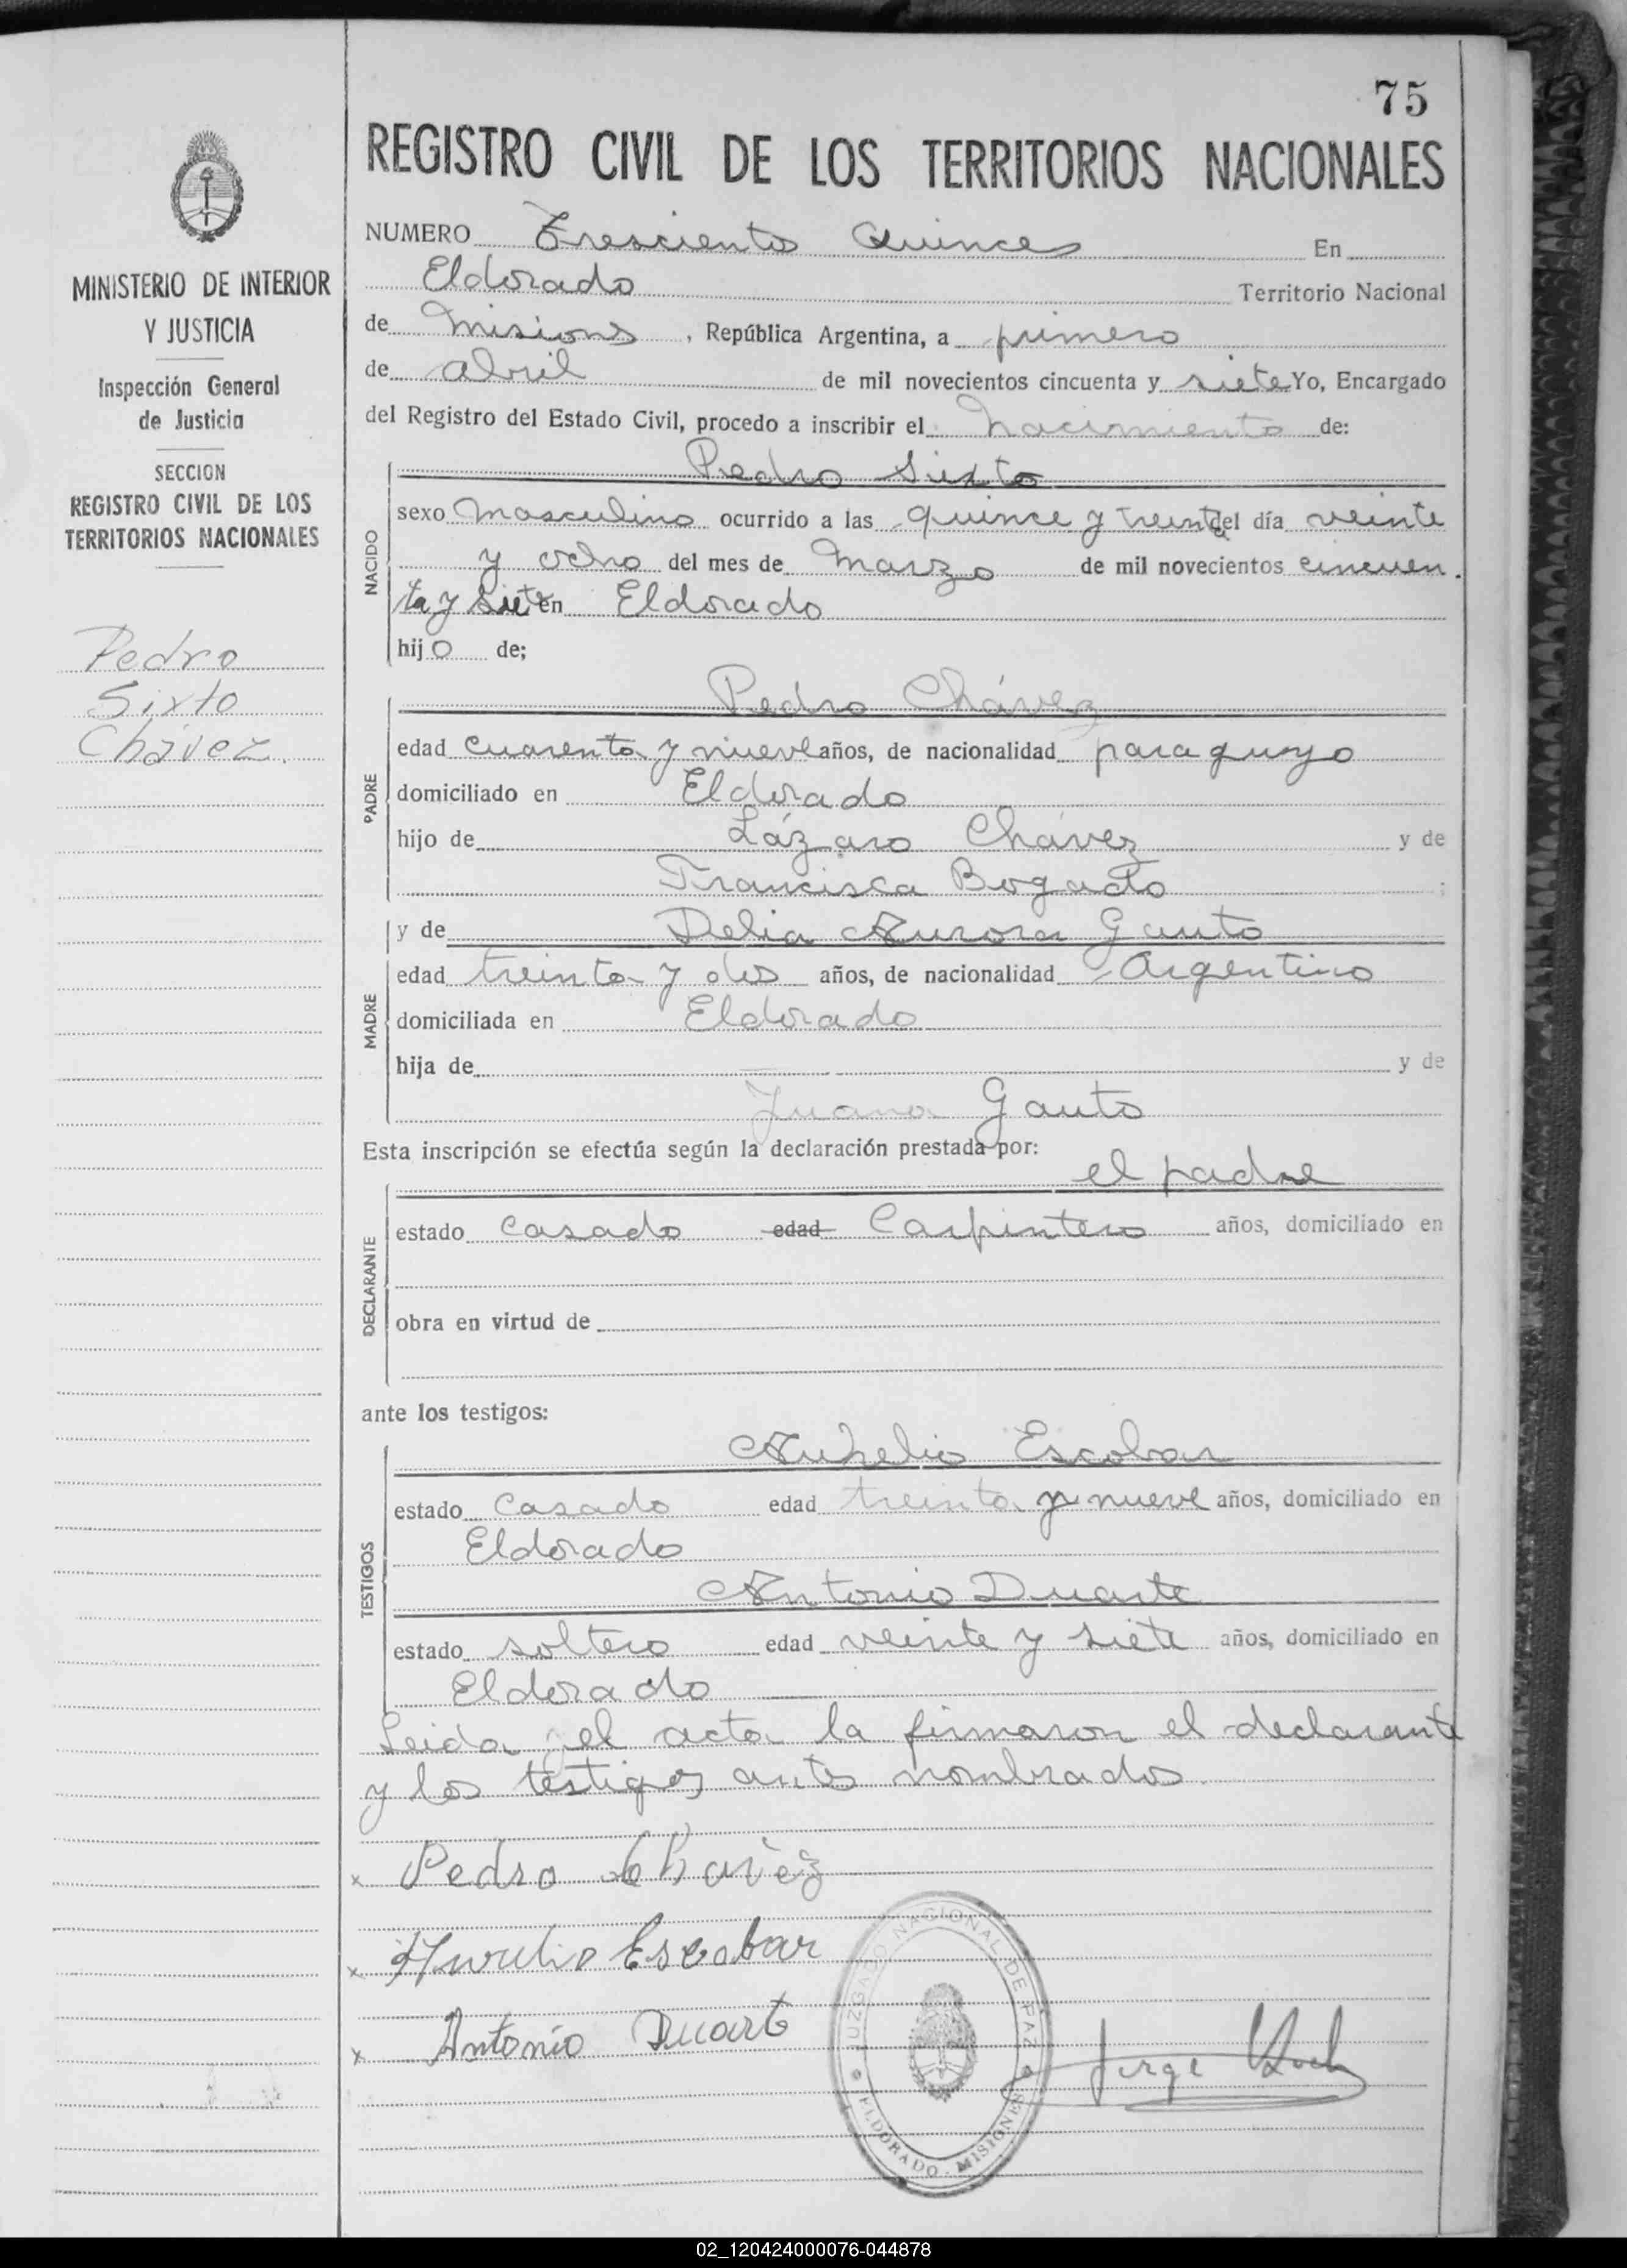 75
REGISTRO CIVIL DE LOS TERRITORIOS NACIONALES
MINISTERIO DE INTERIOR
Y JUSTICIA
Inspección General
de Justicia
SECCION
REGISTRO CIVIL DE LOS
TERRITORIOS NACIONALES
Pedro
Sixto
Chávez.
NUMERO Trescientos Quinces En
Eldorado Territorio Nacional
de Misiones, República Argentina, a primero
de abril de mil novecientos cincuenta y siete Yo, Encargado
del Registro del Estado Civil, procedo a inscribir el nacimiento de:
NACIDO
Pedro Sixto
sexo masculino ocurrido a las quince y treinta del día veinte
y ocho del mes de Marzo de mil novecientos cincuen.
ta y siete en Eldorado
hijo de;
PADRE
Pedro Chávez
edad cuarenta y nueve años, de nacionalidad paraguayo
domiciliado en Eldorado
hijo de Lázaro Chávez y de
Francisca Bogado ;
MADRE
y de Delia Aurora Gauto
edad treinta y dos años, de nacionalidad Argentino
domiciliada en Eldorado
hija de y de
Juana Gauto
Esta inscripción se efectúa según la declaración prestada por:
DECLARANTE
el padre
estado Casado edad Carpintero años, domiciliado en
obra en virtud de
ante los testigos:
TESTIGOS
Aurelio Escobar
estado Casado edad treinta y nueve años, domiciliado en
Eldorado
Antonio Duarte
estado soltero edad veinte y siete años, domiciliado en
Eldorado
Leida el acta la firmaron el declarante
y los testigos antes nombrados.
x Pedro Chavéz
x Aurelio Escobar
x Antonio Duarte
JUZGADO NACIONAL DE PAZ
ELDORADO - MISIONES
Jorge
02_120424000076-044878